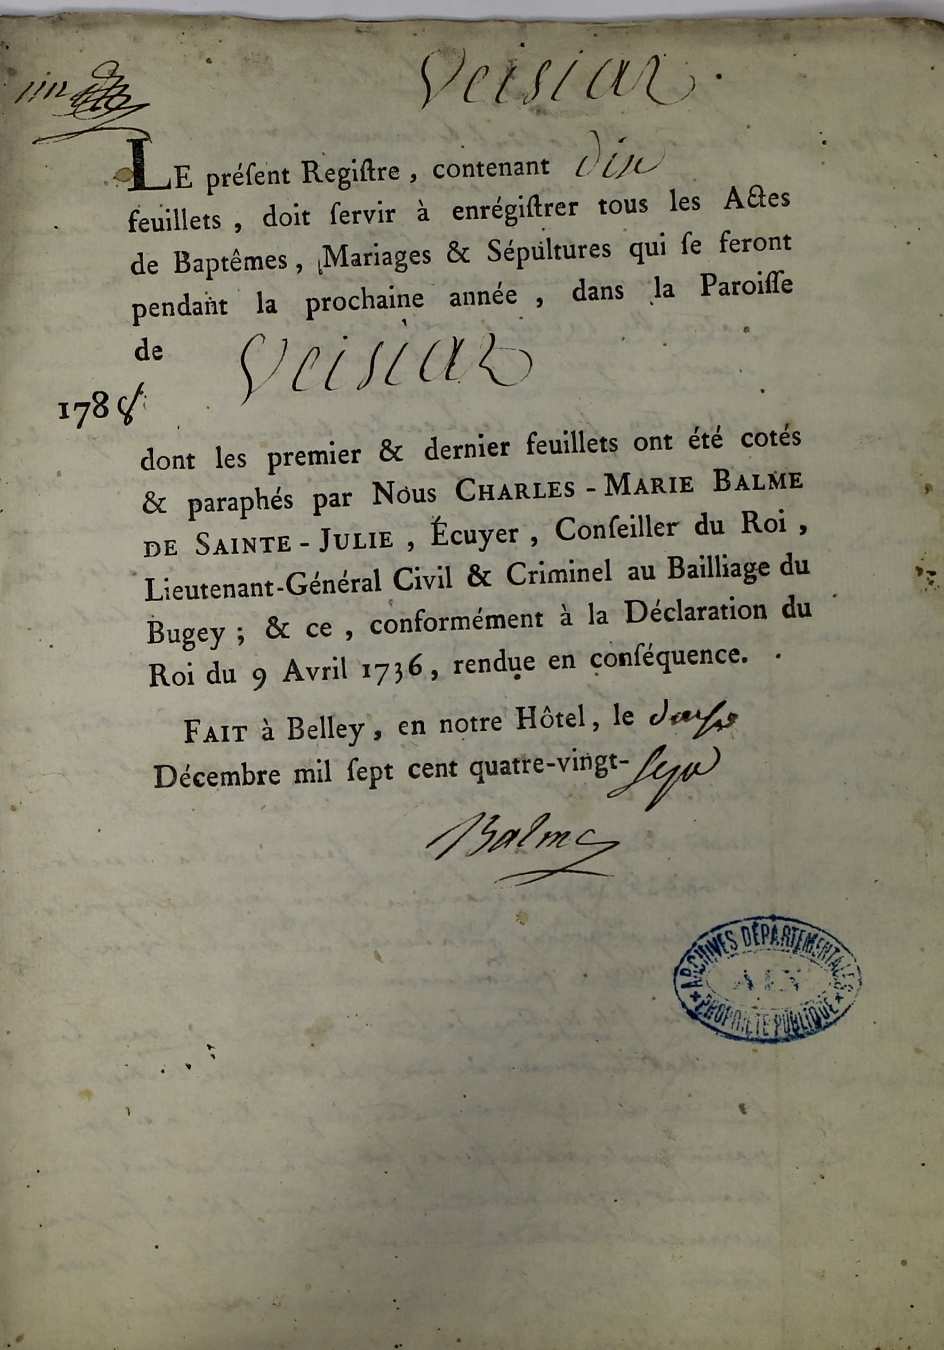 Veisiaz
LE préſent Regiſtre, contenant dix
feuillets, doit ſervir à enrégiſtrer tous les Actes
de Baptêmes, Mariages & Sépultures qui ſe feront
pendant la prochaine année, dans la Paroiſſe
de Veisiaz
1788
dont les premier & dernier feuillets ont été cotés
& paraphés par Nous CHARLES-MARIE BALME
DE SAINTE-JULIE, Écuyer, Conſeiller du Roi,
Lieutenant-Général Civil & Criminel au Bailliage du
Bugey; & ce, conformément à la Déclaration du
Roi du 9 Avril 1736, rendue en conſéquence.
FAIT à Belley, en notre Hôtel, le
Décembre mil ſept cent quatre-vingt-sept
Balme
ARCHIVES DÉPARTEMENTALES
AIN
PROPRIÉTÉ PUBLIQUE